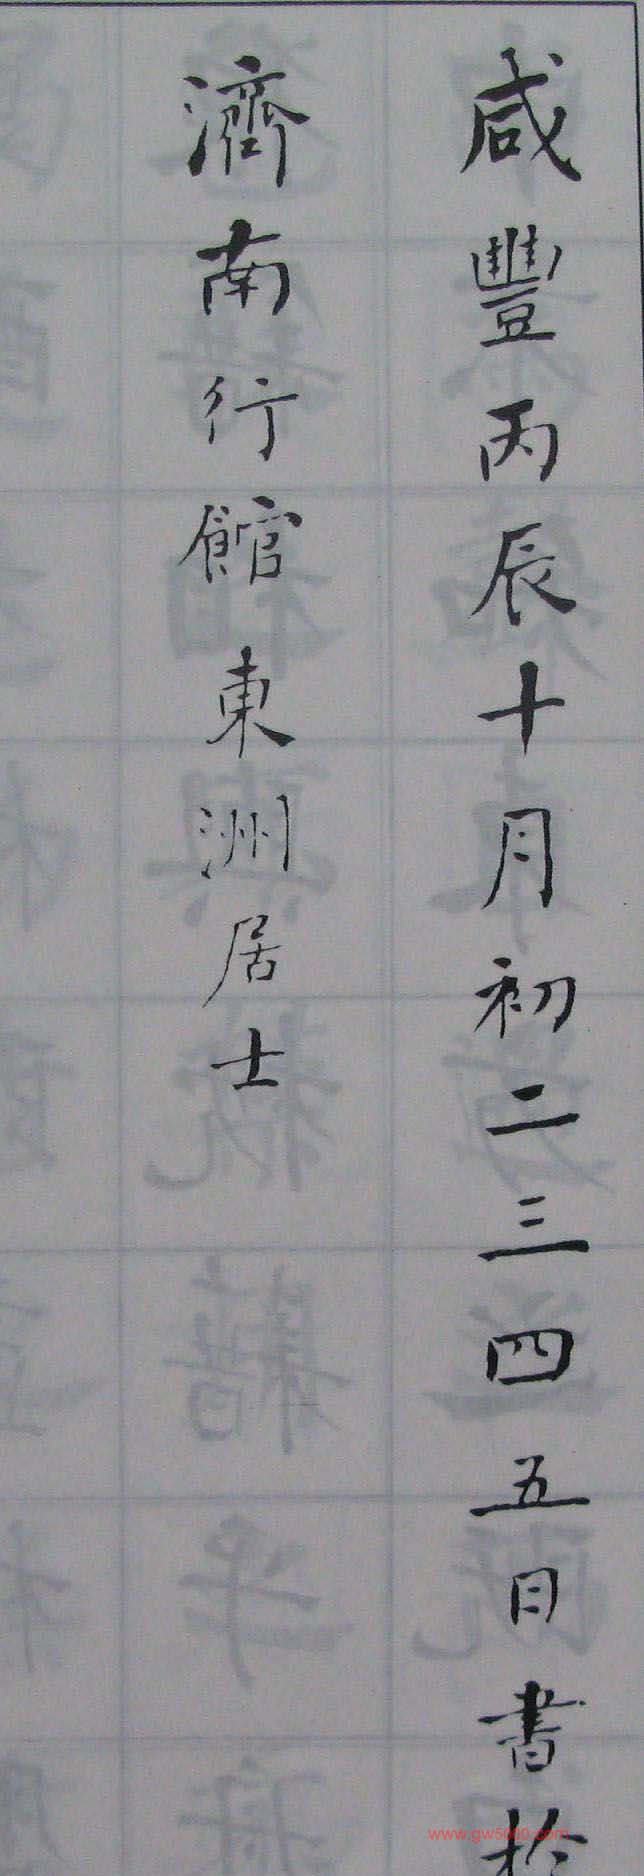 咸豐丙辰十月初二三四五日書於
濟南行館東洲居士
www.gw5000.com